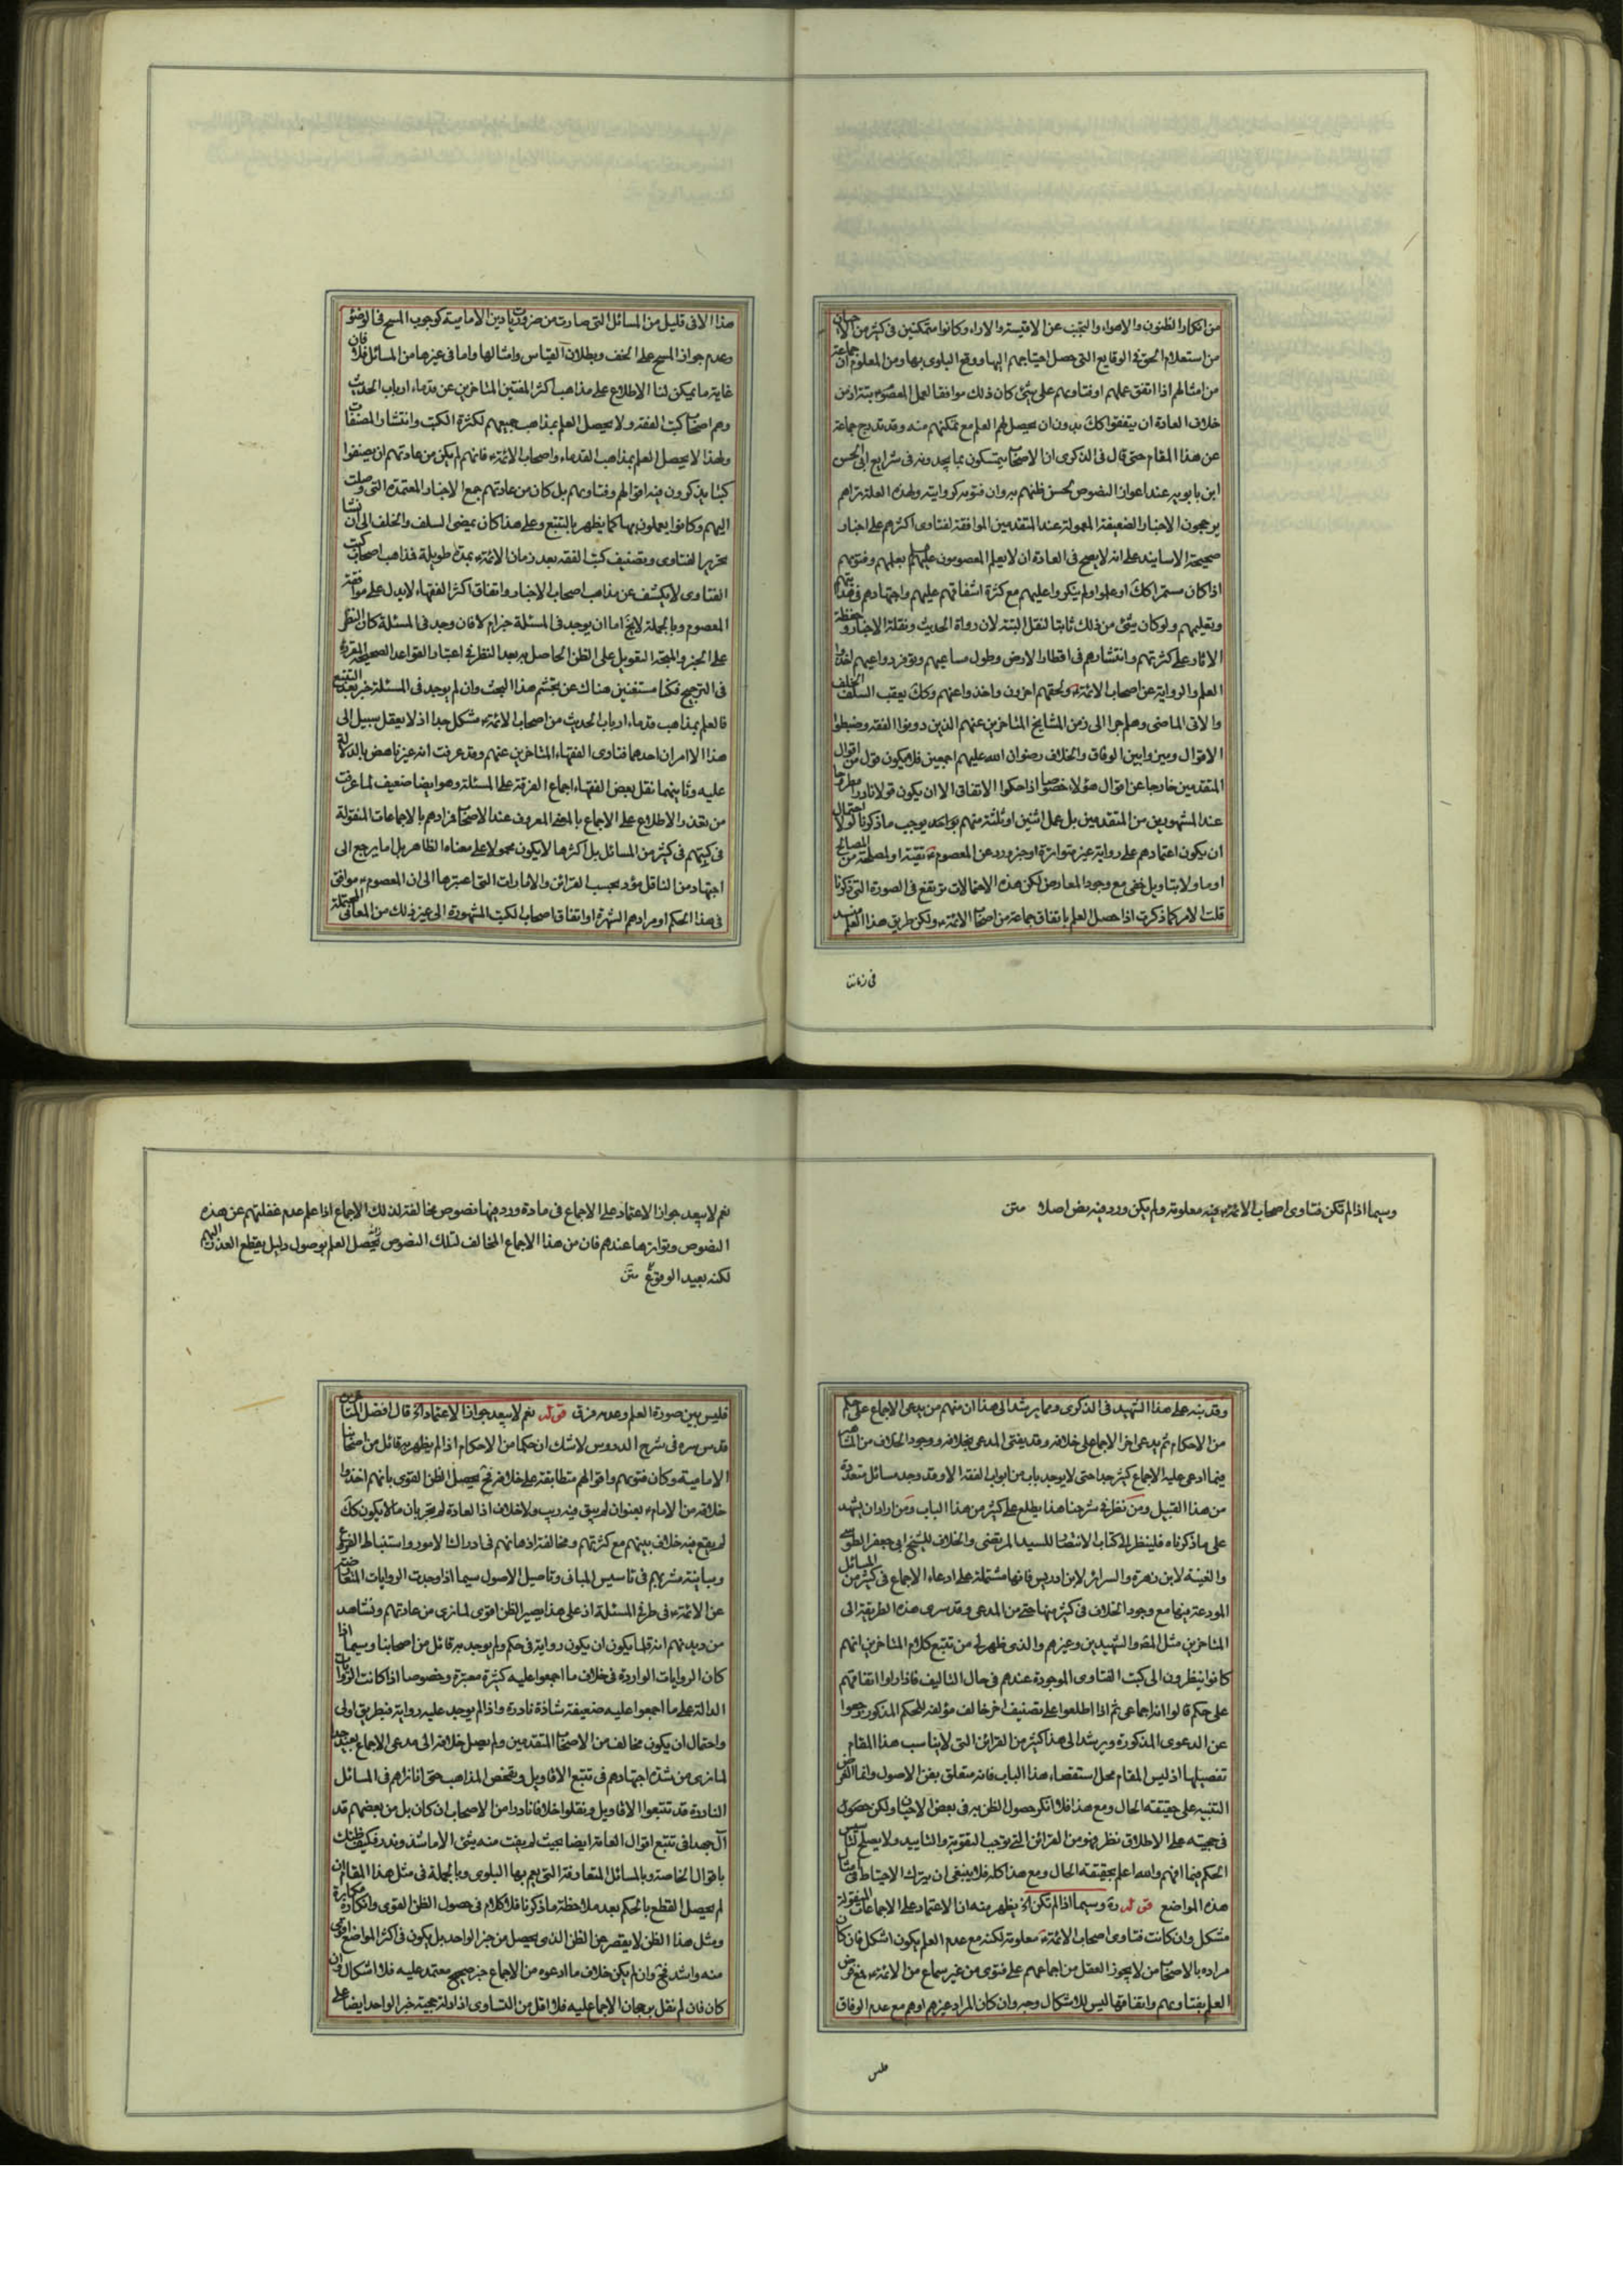 من انكار الظنون والاهواء والتجنب عن الاقيسة والاراء وكانوا متمكنين فى كثير من الاحيان
من استعلام الحق فى الوقايع التى حصل احتياجهم اليها ووقع البلوى بها ومن المعلوم ان جماعة
من امثالهم اذا اتفق عملهم او فتاويهم على شئ كان ذلك موافقا لعمل المعصوم البتة اذ من
خلاف العادة ان يتفقوا كك بدون ان يحصل لهم العلم مع تمكنهم منه وقد تدرج جماعة
عن هذا المقام حتى قال فى الذكرى ان الاصحاب يتمسكون بما يجدونه فى شرايع ابى الحسن
ابن بابويه عند اعواز النصوص لحسن ظنهم به وان فتويه كروايته ولهذه العلة تراهم
يرجحون الاخبار الضعيفة المعمولة عند المتقدمين الموافقة لفتاوى اكثرهم على اخبار
صحيحة الاسانيد على انه لا يصح فى العادة ان لا يعلم المعصومون عليهم بعملهم وفتويهم
اذا كان مستمرا كك او علموا ولم ينكروا عليهم مع كثرة اشفاقهم عليهم واجتهادهم فى هدايتهم
وتعليمهم ولو كان شئ من ذلك ثابتا لنقل البتة لان رواة الحديث ونقلة الاخبار وحفظة
الاثار على كثرتهم وانتشارهم فى اقطار الارض وطول مساعيهم وتوفر دواعيهم اخذوا
العلم والرواية عن اصحاب الائمة ولحقهم اخرون واخذوا عنهم وكك يعقب السلف الخلف
والاتى الماضى وهلم جرا الى زمن المشايخ المتاخرين عنهم الذين دونوا الفقه وضبطوا
الاقوال وبينوا بين الوفاق والخلاف رضوان الله عليهم اجمعين فلا يكون قول من اقوال
المتقدمين خارجا عن اقوال هؤلاء خصوصا اذا حكوا الاتفاق الا ان يكون قولا نادرا مطروحا
عند المشهورين من المتقدمين بل عمل اثنين او ثلثة منهم بواحد يوجب ما ذكرنا لولا احتمال
ان يكون اعتمادهم على رواية غير متواترة او خبر ورد عن المعصوم تقية او لمصلحة من المصالح
او ماولا بتاويل خفى مع وجود المعارض لكن هذه الاحتمالات ترتفع فى الصورة التى ذكرنا
قلت الامر كما ذكرت اذا حصل العلم باتفاق جماعة من اصحاب الائمة ولكن طريق هذا العلم منسد
فى زماننا
هذا الا فى قليل من المسائل التى صارت من ضروريات دين الامامية كوجوب المسح فى الوضوء
وعدم جواز المسح على الخف وبطلان القياس وامثالها واما فى غيرها من المسائل فلا فان
غاية ما يمكن لنا الاطلاع على مذاهب اكثر المفتين المتاخرين عن قدماء ارباب الحديث
وهم اصحاب كتب الفقه ولا يحصل العلم بمذاهب جميعهم لكثرة الكتب وانتشار المصنفات
ولهذا لا يحصل العلم بمذاهب القدماء واصحاب الائمة فانهم لم يكن من عادتهم ان يصنفوا
كتبا يذكرون فيه اقوالهم وفتاويهم بل كان من عادتهم جمع الاخبار المعتمدة التى وصلت
اليهم وكانوا يعملون بها كما يظهر بالتتبع وعلى هذا كان يمضى السلف والخلف الى ان نشأ
تحرير الفتاوى وتصنيف كتب الفقه بعد زمان الائمة بمدة طويلة فمذاهب اصحاب كتب
الفتاوى لا يكشف عن مذاهب اصحاب الاخبار واتفاق اكثر الفقهاء لا يدل على موافقة
المعصوم وبالجملة لا يخ اما ان يوجد فى المسئلة خبر ام لا فان وجد فى المسئلة كان النظر
على الخبر والمتجه التعويل على الظن الحاصل به بعد النظر فى اعتبار القواعد الصحيحة المقررة
فى الترجيح فكنا مستغنين هناك عن تجشم هذا البحث وان لم يوجد فى المسئلة خبر بعد التتبع
فالعلم بمذاهب قدماء ارباب الحديث من اصحاب الائمة مشكل جدا اذ لا يعقل سبيل الى
هذا الا امران احدهما فتاوى الفقهاء المتاخرين عنهم وقد عرفت انه غير ناهض بالدلالة
عليه وثانيهما نقل بعض الفقهاء اجماع الفرقة على المسئلة وهو ايضا ضعيف لما عرفت
من تعذر الاطلاع على الاجماع بالمعنى المعروف عند الاصحاب فمرادهم بالاجماعات المنقولة
فى كتبهم فى كثير من المسائل بل اكثرها لا يكون محمولا على معناه الظاهر بل اما يرجع الى
اجتهاد من الناقل مؤد بحسب القرائن والامارات التى اعتبرها الى ان المعصوم موافق
فى هذا الحكم او مرادهم الشهرة او اتفاق اصحاب الكتب المشهورة الى غير ذلك من المعانى المحتملة
وسيما اذا لم تكن فتاوى اصحاب الائمة فيه معلومة ولم يكن ورد فيه نص اصلا متن
وقد نبه على هذا الشهيد فى الذكرى ومما يرشد الى هذا ان منهم من يدعى الاجماع على حكم
من الاحكام ثم يدعى اخر الاجماع على خلافه وقد يفتى المدعى بخلافه ووجود الخلاف من
فيما ادعى عليه الاجماع كثير جدا حتى لا يوجد باب من ابواب الفقه الا وقد وجد مسائل متعددة
من هذا القبيل ومن نظر فى شرحنا هذا يطلع على كثير من هذا الباب ومن اراد ان يشهد
على ما ذكرناه فلينظر الى كتاب الانتصار للسيد المرتضى والخلاف للشيخ ابى جعفر الطوسى
والغنية لابن زهرة والسرائر لابن ادريس فانها مشتملة على ادعاء الاجماع فى كثير من المسائل
المودعة فيها مع وجود الخلاف فى كثير منها حتى من المدعى وقد سرى هذه الطريقة الى
المتاخرين مثل المحقق والشهيدين وغيرهم والذى ظهر لى من تتبع كلام المتاخرين انهم
كانوا ينظرون الى كتب الفتاوى الموجودة عندهم فى حال التاليف فاذا راوا اتفاقهم
على حكم قالوا انه اجماعى ثم اذا اطلعوا على تصنيف اخر خالف مؤلفه للحكم المذكور رجعوا
عن الدعوى المذكورة ويرشد الى هذا كثير من القرائن التى لا يناسب هذا المقام
تفصيلها اذ ليس المقام محل استقصاء هذا الباب فانه متعلق بفن الاصول وانما الغرض
التنبيه على حقيقة الحال ومع هذا فلا انكر حصول الظن به فى بعض الاحيان ولكن حصول
فى حجيته على الاطلاق نظر فهو من القرائن التى توجب التقوية والتاييد ولا يصلح
الحكم فيما افهم والله اعلم بحقيقة الحال ومع هذا كله فلا ينبغى ان يترك الاحتياط فى
هذه المواضع قوله ره وسيما اذا لم تكن اه يظهر منه ان الاعتماد على الاجماعات المنقولة
مشكل وان كانت فتاوى اصحاب الائمة معلومة لكنه مع عدم العلم يكون اشكل فان كان
مراده بالاصحاب من لا يجوز العقل من اجماعهم على فتوى من غير سماع من الائمة فمع فرض
العلم بفتاويهم واتفاقها ليس للاشكال وجه وان كان المراد غيرهم او هم مع عدم الوفاق
نعم لا يبعد جواز الاعتماد على الاجماع فى مادة ورد فيها نصوص مخالفة لذلك الاجماع اذا علم عدم غفلتهم عن هذه
النصوص وتواترها عندهم فان من هذا الاجماع المخالف لتلك النصوص يحصل العلم بوصول دليل يقطع العذر اليهم
لكنه بعيد الوقوع متن
فليس بين صورة العلم وعدمه فرق قوله نعم لا يبعد جواز الاعتماد اه قال افضل المتاخرين
قدس سره فى شرح الدروس لا شك ان حكما من الاحكام اذا لم يظهر به قائل من اصحابنا
الامامية وكان فتويهم واقوالهم متطابقة على خلافه فح يحصل الظن القوى بانهم اخذوا
خلافه من الامام بعنوان لم يبق فيه ريب ولا خلاف اذ العادة لم تجر بان ما لا يكون كك
لم يقع فيه خلاف بينهم مع كثرتهم ومخالفة اذهانهم فى ادراك الامور واستنباط الفروع
ومباينة مشربهم فى تاسيس المبانى وتاصيل الاصول سيما اذا وجدت الروايات المتعارضة
عن الائمة فى طرفى المسئلة اذ على هذا يصير الظن اقوى لما نرى من عادتهم ونشاهد
من ديدنهم انه قلما يكون ان يكون رواية فى حكم ولم يوجد به قائل من اصحابنا وسيما اذا
كان الروايات الواردة فى خلاف ما اجمعوا عليه كثيرة معتبرة وخصوصا اذا كانت الروايات
الدالة على ما اجمعوا عليه ضعيفة شاذة نادرة واذا لم يوجد عليه رواية فبطريق اولى
واحتمال ان يكون مخالف من الاصحاب المتقدمين ولم يصل خلافه الى مدعى الاجماع بعيد جدا
لما نرى من شدة اجتهادهم فى تتبع الاقاويل وتفحص المذاهب حتى انا نراهم فى المسائل
النادرة قد تتبعوا الاقاويل ونقلوا خلافا نادرا من الاصحاب ان كان بل من بعضهم قد
آل جهدا فى تتبع اقوال العامة ايضا بحيث لم يفت منه شئ الا ما شذ وندر فكيف ظنك
باقوال الخاصة وبالمسائل المتعارفة التى يعم بها البلوى وبالجملة فى مثل هذا المقام ان
لم يحصل القطع بالحكم بعد ملاحظة ما ذكرنا فلا كلام فى حصول الظن القوى وانكاره مكابرة
ومثل هذا الظن لا يقصر عن الظن الذى يحصل من خبر الواحد بل يكون فى اكثر المواضع اقوى
منه واشد فح وان لم يكن خلاف ما ادعوه من الاجماع خبر صحيح معتمد عليه فلا اشكال وان
كان فان لم نقل برجحان الاجماع عليه فلا اقل من التساوى اذ ادلة حجية خبر الواحد ايضا على